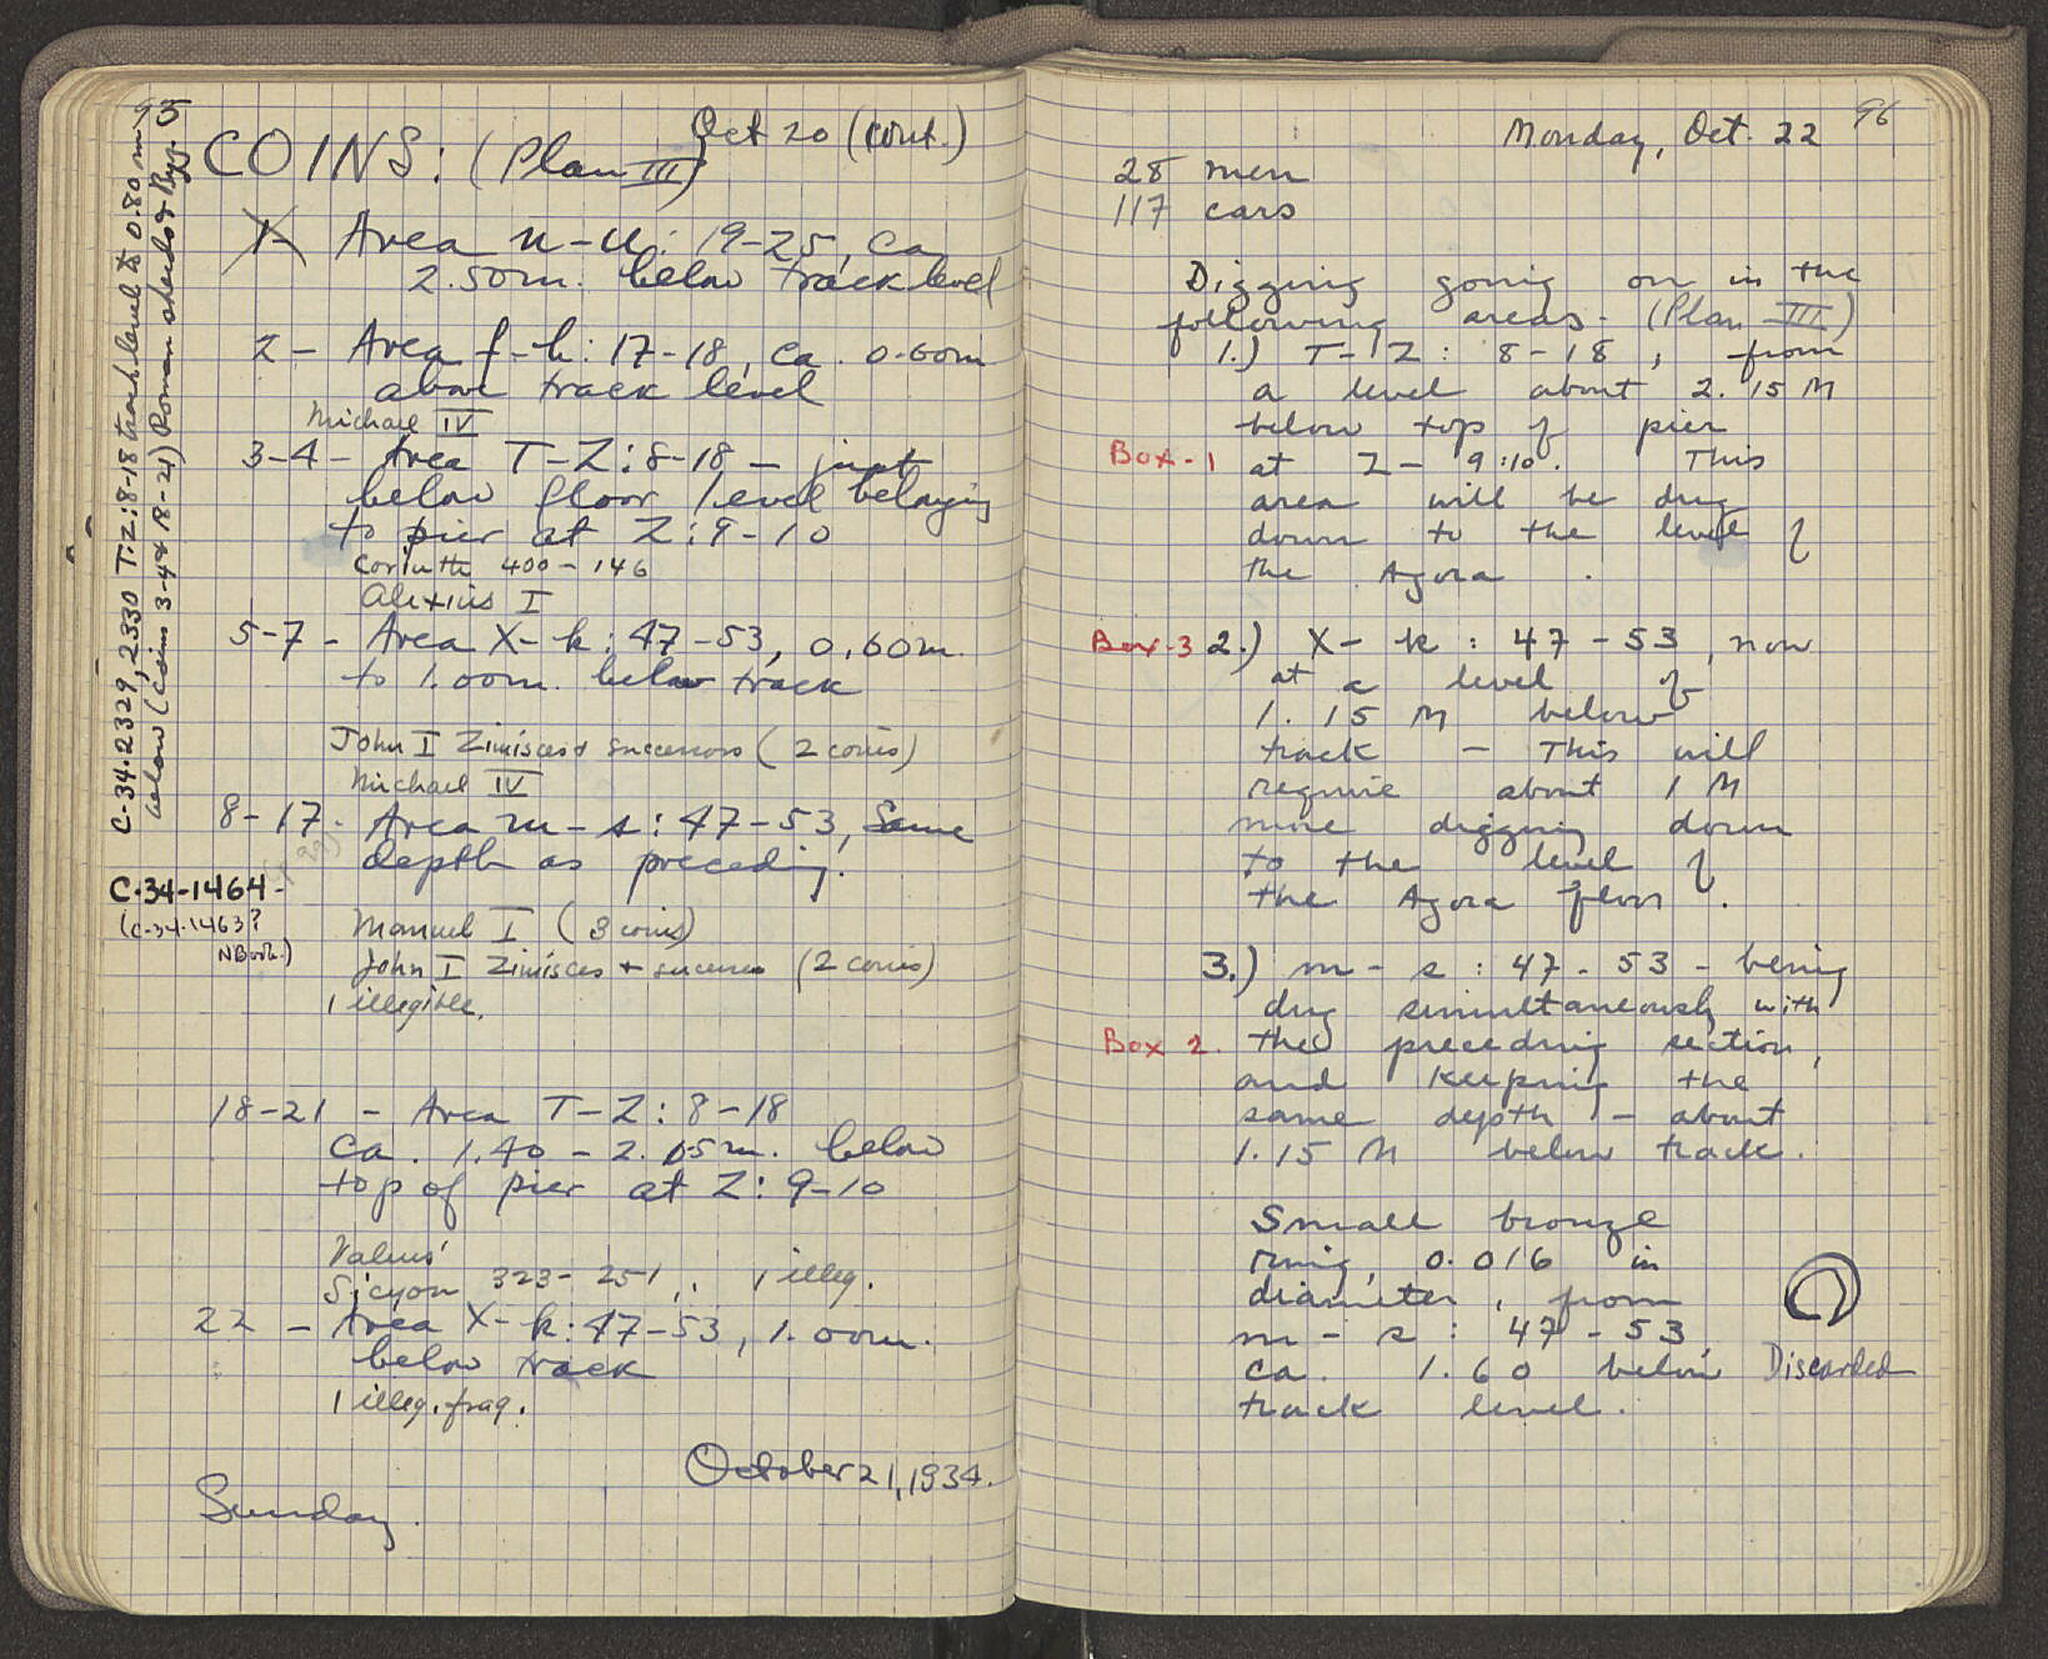 95
Oct 20 (cont.)
COINS: (Plan III)
1- Area n-u: 19-25, ca
2.50m. below track level
2- Area f-k: 17-18, ca. 0.60m
above track level
Michael IV
3-4 - Area T-Z: 8-18 - just
below floor level belonging
to pier at Z: 9-10
Corinth 400-146
Alexius I
5-7 - Area X-k: 47-53, 0.60m.
to 1.00m. below track
John I Zimisces & successors (2 coins)
Michael IV
8-17- Area m-s: 47-53, Same
depth as preceding.
C-34-1464-
(C-34-1463?
NBook.)
Manuel I (3 coins)
John I Zimisces + success (2 coins)
1 illegible.
18-21 - Area T-Z: 8-18
ca. 1.40 - 2.15m. below
top of pier at Z: 9-10
Valens'
Sicyon 323-251, 1 illeg.
22 - Area X-k: 47-53, 1.00m.
below track
1 illeg. frag.
October 21, 1934.
Sunday.
C-34-2329, 2330 T-Z: 8-18 track level to 0.80m
below (Coins 3-4 & 18-21) Roman sherds & Byz.
96
Monday, Oct. 22
28 men
117 cars
Digging going on in the
following areas- (Plan III)
1.) T-Z: 8-18, from
a level about 2.15 M
below top of pier
Box-1 at Z- 9:10. This
area will be dug
down to the level of
the Agora.
Box-3 2.) X-k: 47-53, now
at a level of
1.15 M below
track - This will
require about 1 M
more digging down
to the level of
the Agora floor.
3.) m-s: 47-53 - being
dug simultaneously with
Box 2. the preceding section,
and keeping the
same depth - about
1.15 M below track.
Small bronze
ring, 0.016 in
diameter, from
m-s: 47-53,
ca. 1.60 below
track level.
Discarded